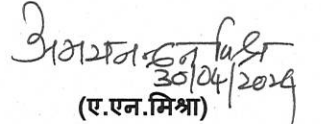 अभयानन्दन मिश्र
30/04/2024
(ए.एन.मिश्रा)